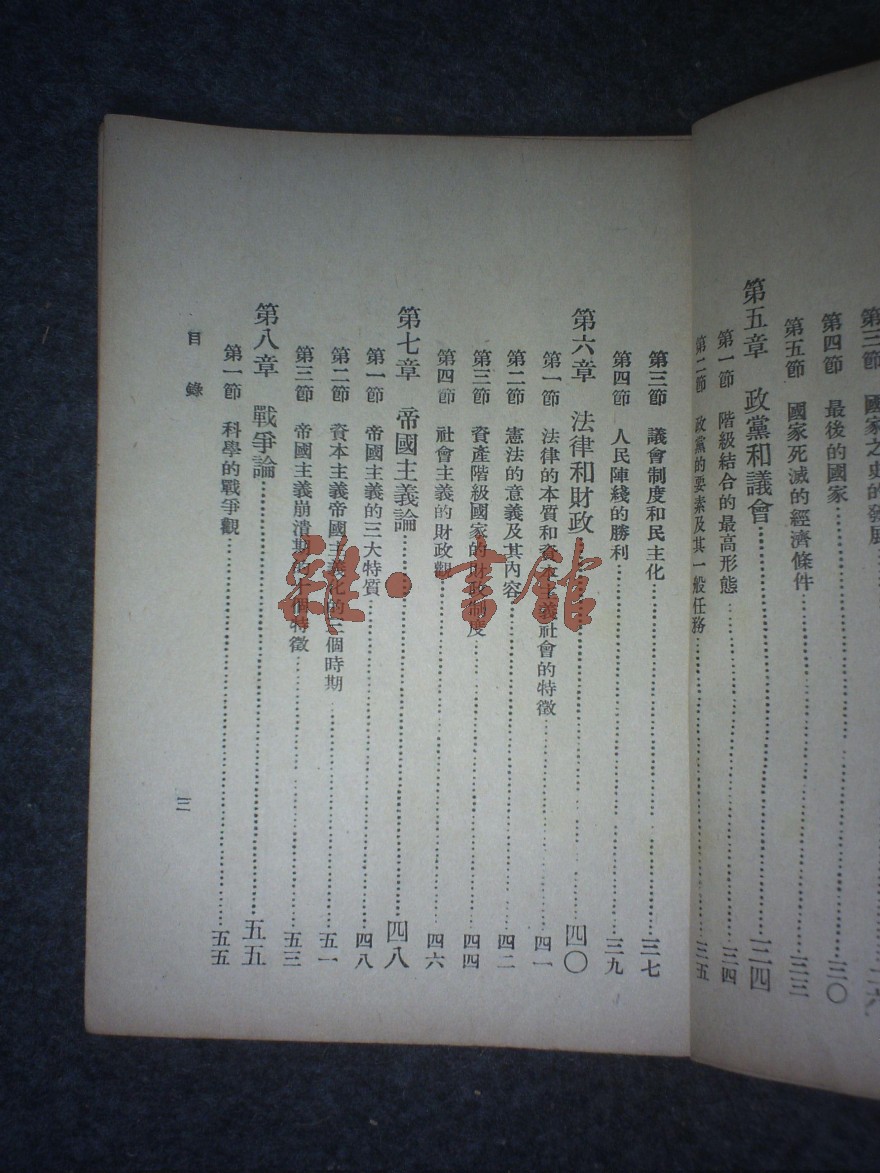 第三節 國家之史的發展……二六
第四節 最後的國家……三〇
第五節 國家死滅的經濟條件……三三
第五章 政黨和議會……三四
第一節 階級結合的最高形態……三四
第二節 政黨的要素及其一般任務……三五
第三節 議會制度和民主化……三七
第四節 人民陣綫的勝利……三九
第六章 法律和財政……四〇
第一節 法律的本質和資本主義社會的特徵……四一
第二節 憲法的意義及其內容……四二
第三節 資產階級國家的財政制度……四四
第四節 社會主義的財政觀……四六
第七章 帝國主義論……四八
第一節 帝國主義的三大特質……四八
第二節 資本主義帝國主義化的三個時期……五一
第三節 帝國主義崩潰期的十個特徵……五三
第八章 戰爭論……五五
第一節 科學的戰爭觀……五五
目錄
三
雜·書館